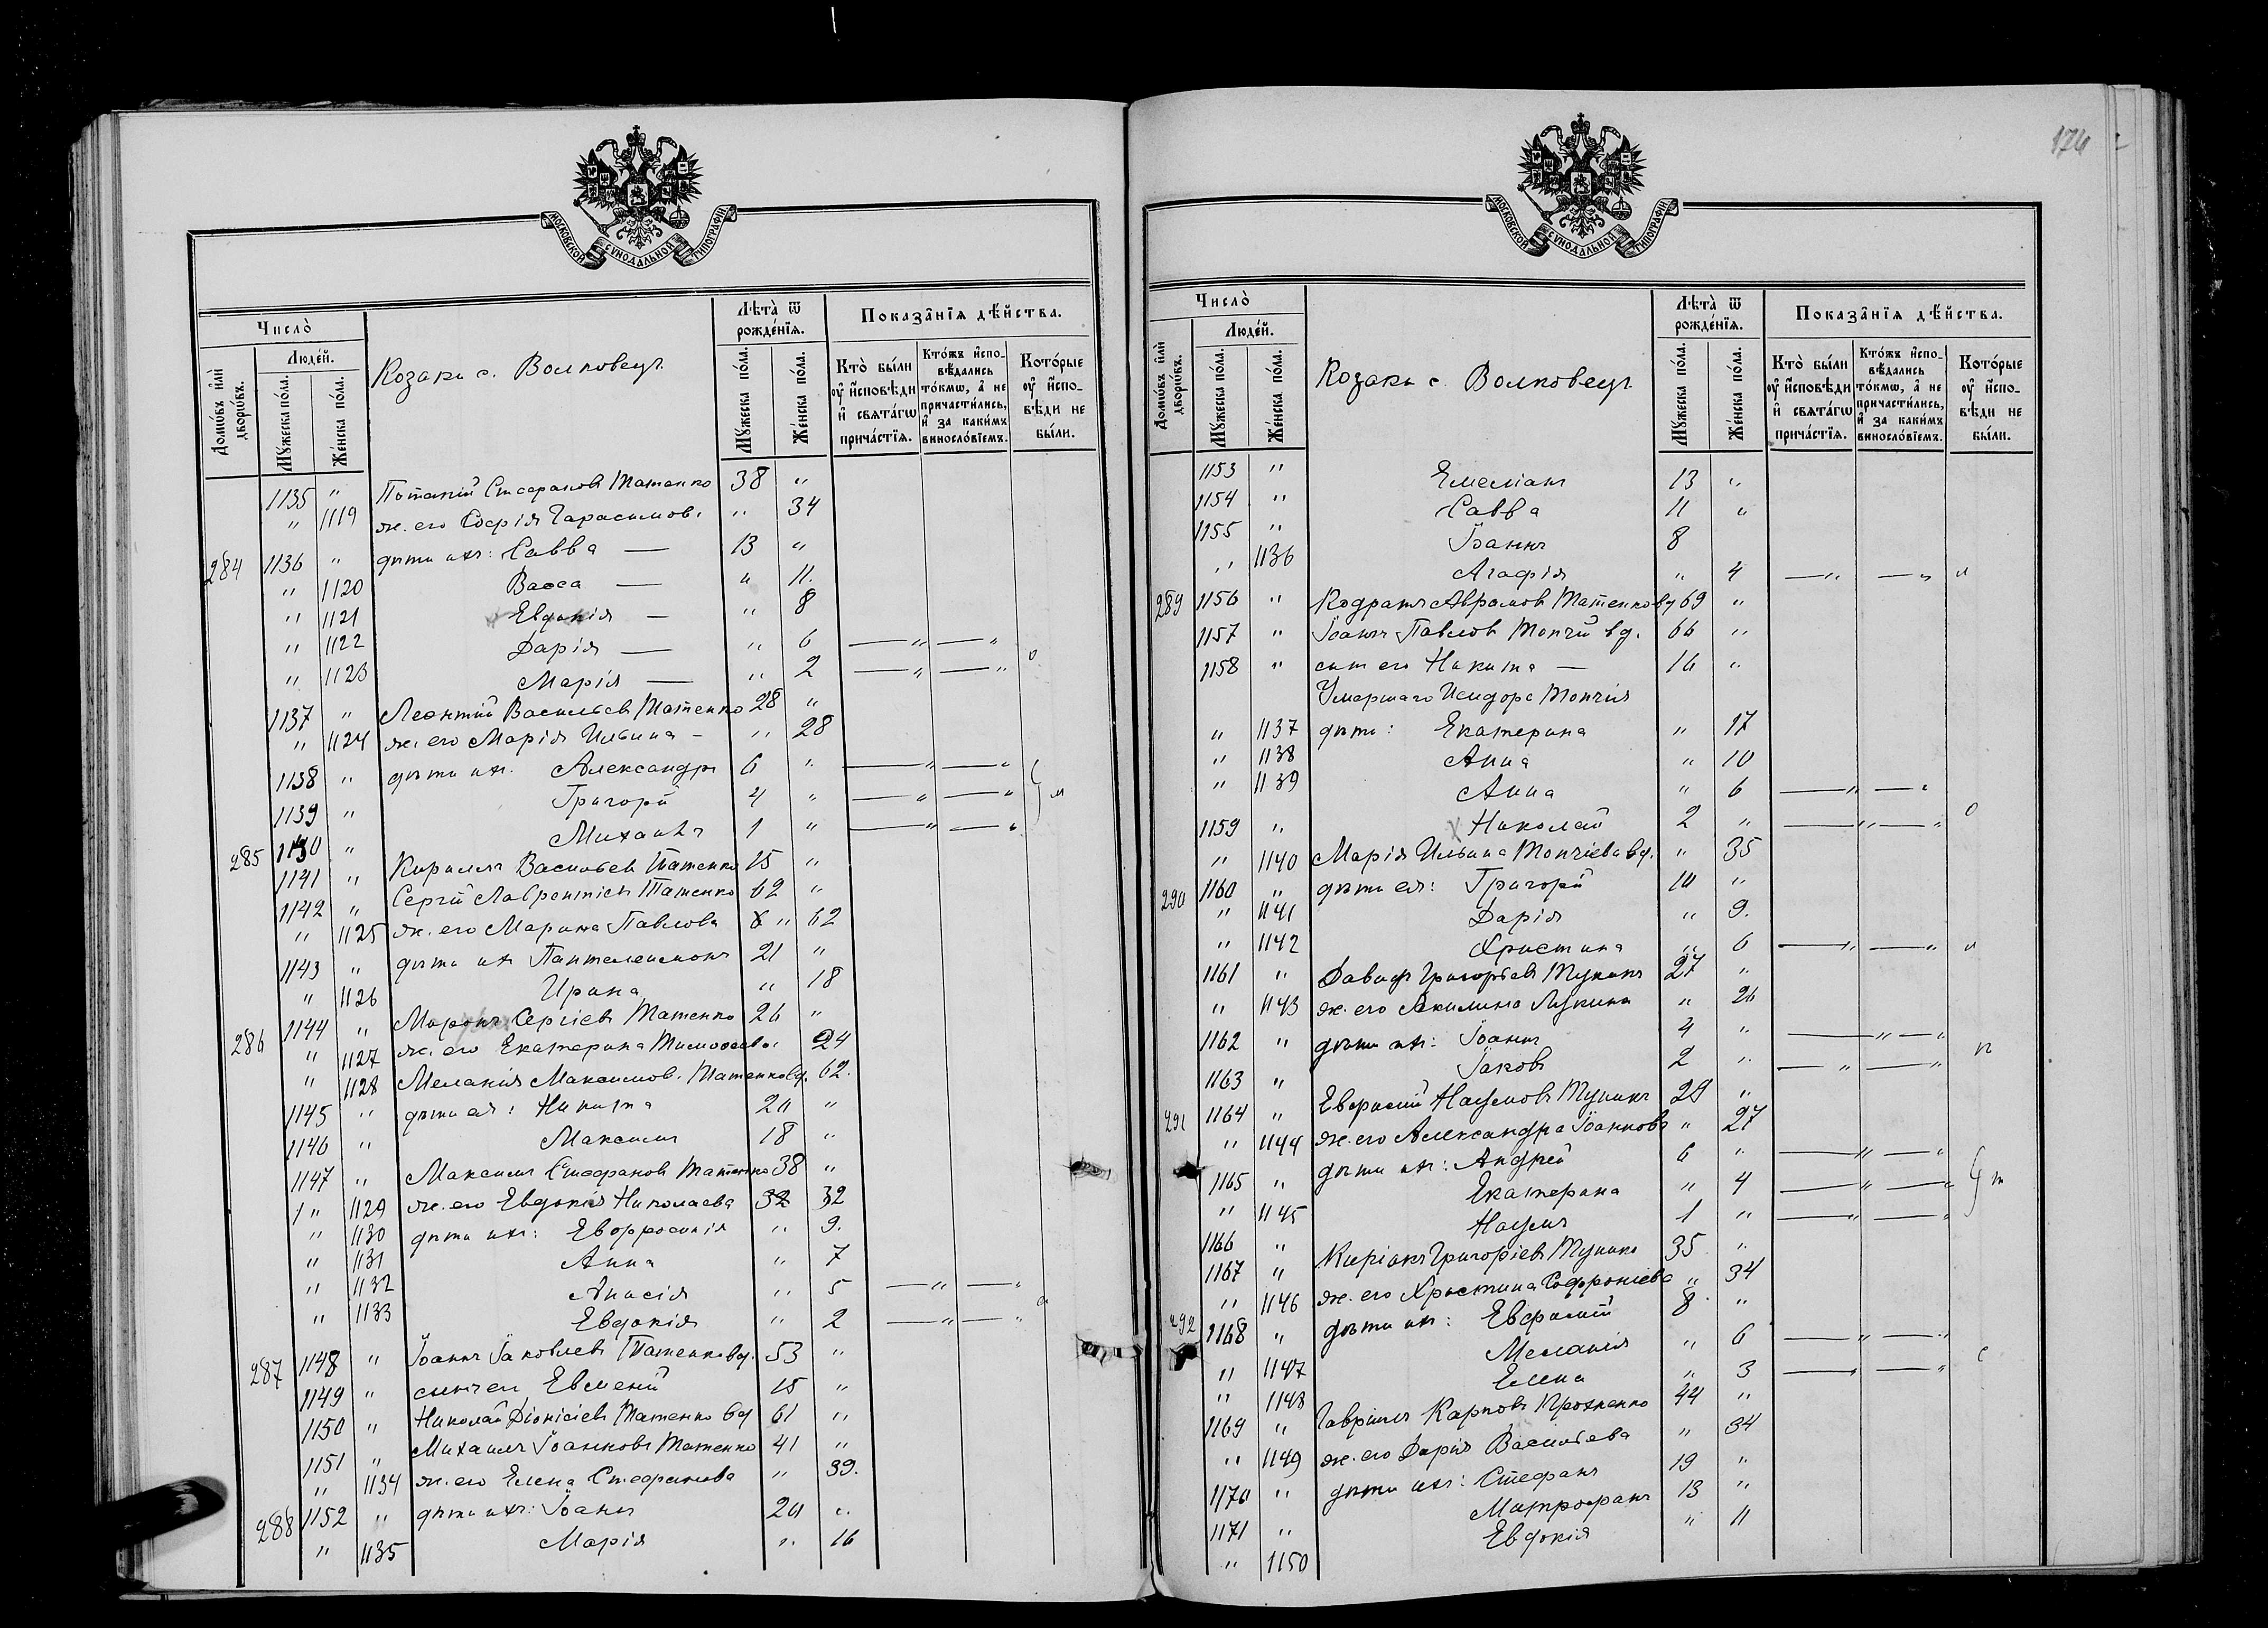 МОСКОВСКОЙ СѴНОДАЛЬНОЙ ТИПОГРАФІИ
Число̀
Люде́й.
Домѡ́въ и҆лѝ дворѡ́въ.
Мꙋ́жеска по́ла.
Же́нска по́ла.
Козаки с. Волковецъ
Лѣта̀ ѿ рожде́нїѧ.
Мꙋ́жеска по́ла.
Же́нска по́ла.
Показа̑нїѧ дѣ́йства.
Кто̀ бы́ли ᲂу҆ и҆сповѣ́ди и҆ свѧта́гѡ прича́стїѧ.
Кто́жъ и҆спо-вѣ́дались то́кмѡ, а҆ не причасти́лись, и҆ за каки́мъ винословїемъ.
Кото́рые ᲂу҆ и҆спо-вѣ́ди не бы́ли.
1135 " Потапій Стефановъ Татенко 38 "
" 1119 ж. его Софія Гарасимов. " 34
284 1136 " дѣти ихъ: Савва — 13 "
" 1120 Васса — " 11.
" 1121 Евдокія — " 8
" 1122 Дарія — " 6 — " — "
" 1123 Марія — " 2 — " — "
1137 " Леонтій Васильевъ Татенко 28 "
" 1124 ж. его Марія Ильина - " 28
1138 " дѣти ихъ. Александръ 6 " — " — "
1139 " Григорій 4 " — " — " и
285 1140 " Михаилъ 1 " — " — "
1141 " Кириллъ Васильевъ Татенко 15 "
1142 " Сергій Лаврентіевъ Татенко 62 "
" 1125 ж. его Марина Павлова " 62
1143 " дѣти ихъ Пантелеимонъ 21 "
" 1126 Ирина " 18
286 1144 " Миронъ Сергіевъ Татенко 26 "
" 1127 ж. его Екатерина Тимофеева " 24
" 1128 Меланія Максимов. Татенко вд. 62.
1145 " дѣти ея: Никита 20 "
1146 " Максимъ 18 "
1147 " Максимъ Стефановъ Татенко 38 "
" 1129 ж. его Евдокія Николаева 32 32
" 1130 дѣти ихъ: Евфросинія " 9.
" 1131 Анна " 7
" 1132 Анисія " 5 — " — "
" 1133 Евдокія " 2 — " — "
287 1148 " Іоаннъ Іаковлевъ Татенко вд. 53 "
1149 " сынъ его Евменій 15 "
1150 " Николай Діонісіевъ Татенко вд 61 "
1151 " Михаилъ Іоанновъ Татенко 41 "
" 1134 ж. его Елена Стефанова " 39.
288 1152 " дѣти ихъ: Іоаннъ 20 "
" 1135 Марія " 16
174
МОСКОВСКОЙ СѴНОДАЛЬНОЙ ТИПОГРАФІИ
Число̀
Люде́й.
Домѡ́въ и҆лѝ дворѡ́въ.
Мꙋ́жеска по́ла.
Же́нска по́ла.
Козаки с. Волковецъ
Лѣта̀ ѿ рожде́нїѧ.
Мꙋ́жеска по́ла.
Же́нска по́ла.
Показа̑нїѧ дѣ́йства.
Кто̀ бы́ли ᲂу҆ и҆сповѣ́ди и҆ свѧта́гѡ прича́стїѧ.
Кто́жъ и҆спо-вѣ́дались то́кмѡ, а҆ не причасти́лись, и҆ за каки́мъ винословїемъ.
Кото́рые ᲂу҆ и҆спо-вѣ́ди не бы́ли.
1153 " Емеліанъ 13 "
1154 " Савва 11 "
1155 " Іоаннъ 8
" 1136 Агафія " 4 — " — " и
289 1156 " Кодратъ Аврамовъ Татенко вд 69 "
1157 " Іоаннъ Павловъ Топчій вд. 66 "
1158 " сынъ его Никита — 16 "
Умершаго Исидора Топчія
" 1137 дѣти: Екатерина " 17
" 1138 Анна " 10
" 1139 Анна " 6 — " — "
1159 " Николай 2 " — " — "
" 1140 Марія Ильина Топчіева вд. " 35
290 1160 " дѣти ея: Григорій 10 "
" 1141 Дарія " 9.
" 1142 Христина " 6 — " — " и
1161 " Давидъ Григорьевъ Тупикъ 27 "
" 1143 ж. его Акилина Лукина " 26
1162 " дѣти ихъ: Іоаннъ 4 " — " — "
1163 " Іаковъ 2 " — " — "
291 1164 " Евфимій Наумовъ Тупикъ 29 "
" 1144 ж. его Александра Іоаннова " 27
1165 " дѣти ихъ: Андрей 6 " — " — "
" 1145 Екатерина " 4 — " — "
1166 " Наумъ 1 " — " — "
1167 " Киріакъ Григоріевъ Тупикъ 35 "
" 1146 ж. его Христина Софроніева " 34
292 1168 " дѣти ихъ: Евфимій 8 "
" 1147 Меланія " 6 — " — "
" 1148 Елена " 3 — " — "
1169 " Гавріилъ Карповъ Прохненко 44 "
" 1149 ж. его Дарія Васильева " 34
1170 " дѣти ихъ: Стефанъ 19 "
1171 " Митрофанъ 13 "
" 1150 Евдокія " 11